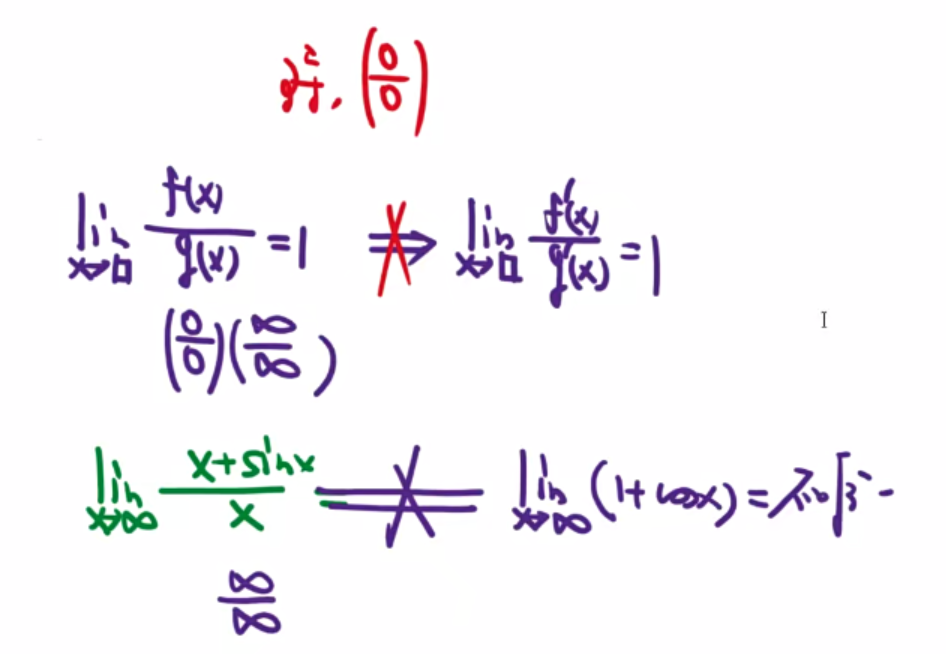 (0/0)
lim x→□ f(x)/g(x) = 1 ⇏ lim x→□ f'(x)/g'(x) = 1
(0/0) (∞/∞)
lim x→∞ (x+sinx)/x ≠ lim x→∞ (1+cosx) =
∞/∞